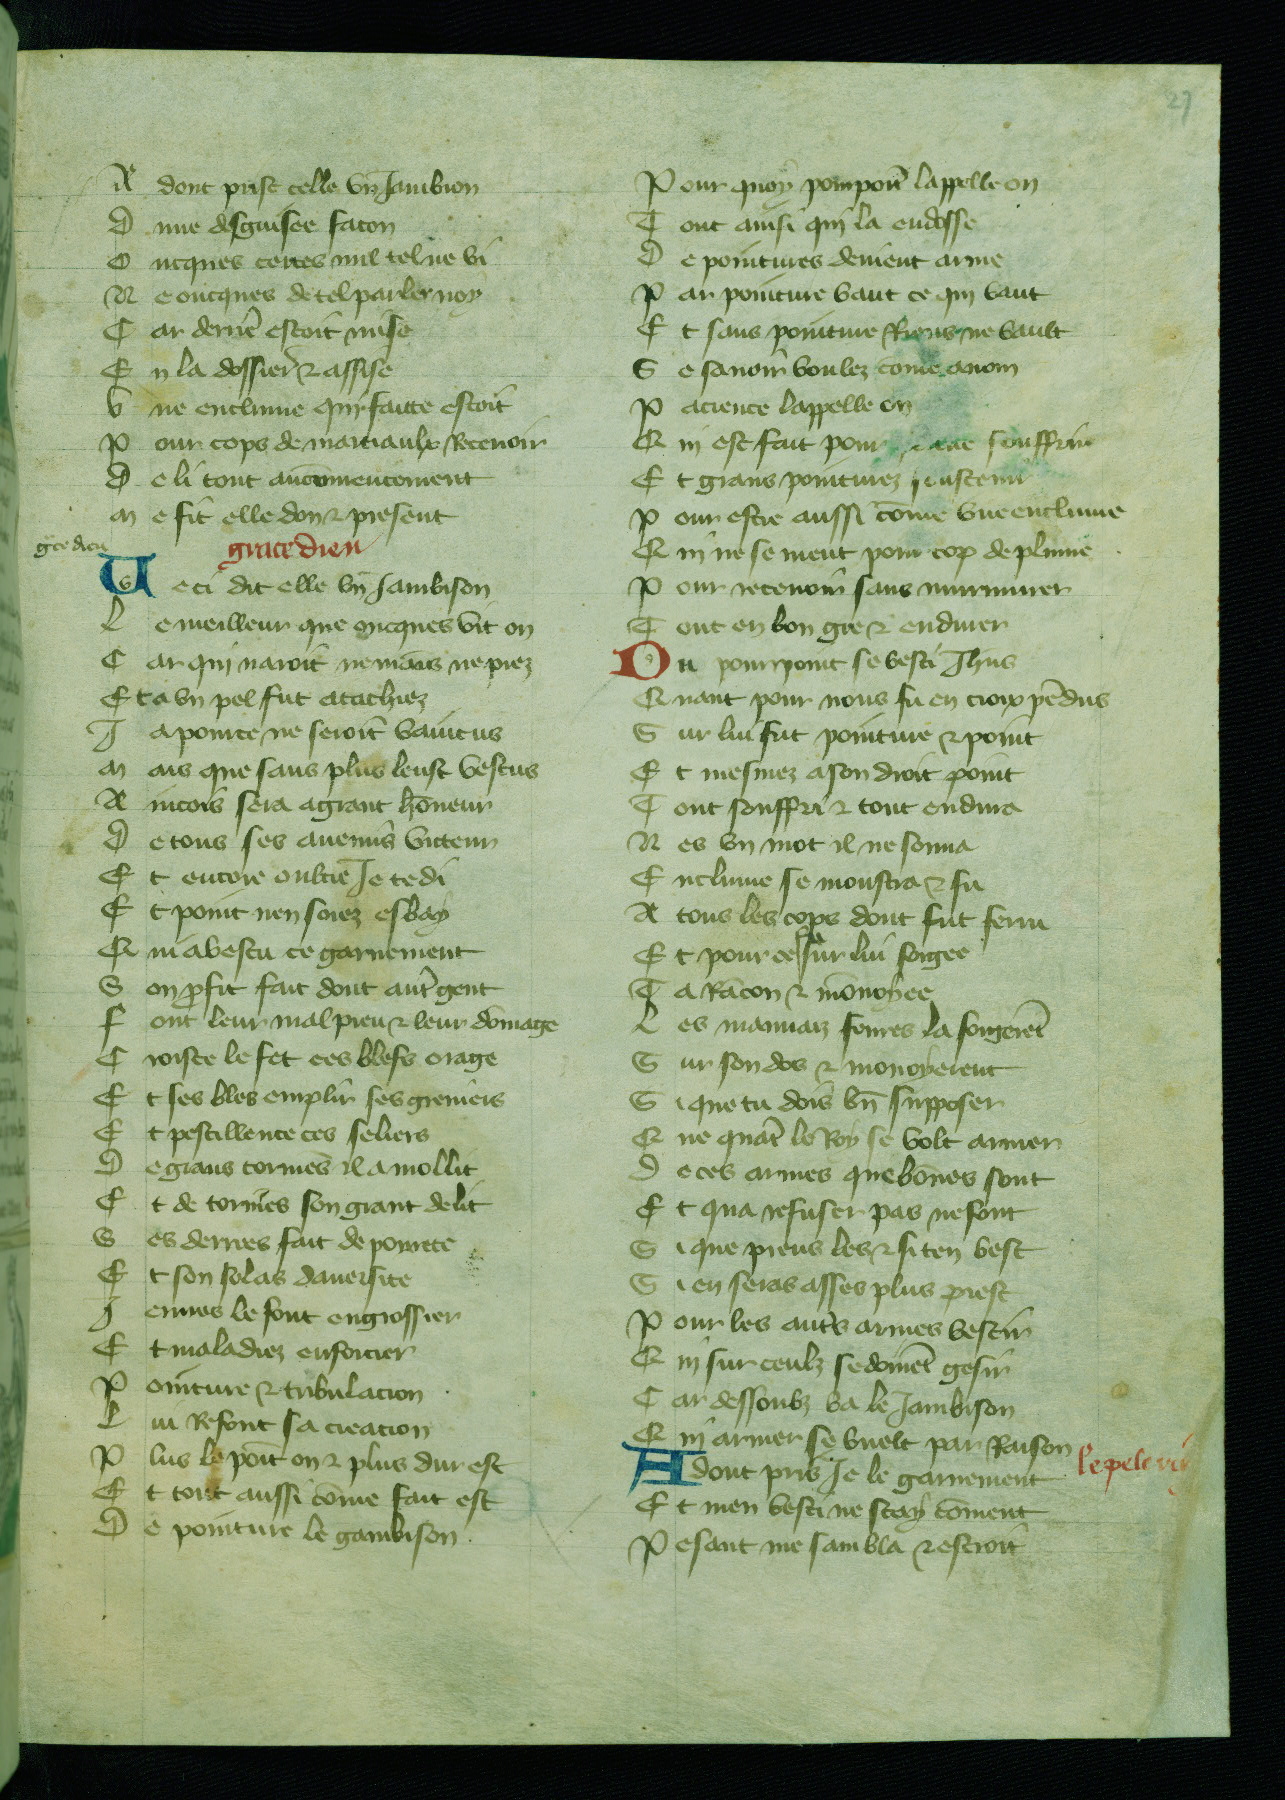 27
A dont prist celle vn Jambion
D une desguisee facon
O ncques certes nul tel ne vi
N e oncques de tel parler noy
C ar derrie estoit mise
E n la dossier & assise
V ne enclume qui faicte estoit
P our cops de martiaulx Recevoir
D e li tout au comencement
M e fit elle don & present
gce dieu
grace dieu
V e ci dit elle vn Jambison
L e meilleur que oncques vit on
C ar qui naroit ne mais ne piez
E t a vn pel fut atachiez
J a pource ne seroit vaincus
M ais que sans plus leust vestus
A incois sera a grant honeur
D e tous ses anemis victeur
E t encore oultre Je te di
E t point nen soiez esbay
Q ui a vestu ce garnement
S on profit fait dont autre gent
F ont leur mal preu & leur domage
C roistre le fet ces blefs orage
E t ses bles emplir ses greniers
E t pestillence ces seliers
D e grans tormes il a mollit
E t de tormes son grant delit
S es derrees fait de povrete
E t son solas daversite
J eunes le font engrossier
E t maladiez enforcier
P ointure & tribulacion
L ui Refont sa creation
P lus le point on & plus dur est
E t tout aussi come fait est
D e pointure le gambison
P our quoy pourpoit lappelle on
T out ainsi qui la endosse
D e pointures devient arme
P ar pointure vaut ce qui vaut
E t sans pointure Riens ne vault
S e savoir voulez come a nom
P acience lappelle on
Q ui est fait pour souffrir
E t grans pointurez soustenir
P our estre aussi come vne enclume
Q ui ne se meut pour cop de plume
P our recevoir sans murmurer
T out en bon gre & endurer
D u pourpoint se vesti Jhus
Q uant pour nous fu en croix pedus
S ur lui fut pointure & point
E t mesmez a son droit point
T out souffri & tout endura
N es vn mot il ne sonna
E nclume se monstra & fu
A tous les cops dont fut feru
E t pour ce sur lui forgee
T a Racon & monoyee
L es mauvaiz fevres la forgeret
S ur son dos & monoyerent
S i que tu dois bn supposer
Q ue quat le Roy se volt armer
D e ces armes que bones sont
E t qua refuser pas ne font
S i que preus les & si ten vest
S i en seras asses plus prest
P our les autrs armes vestir
Q ui sur ceulz se doivet gesir
C ar dessoubz va le Jambison
Q ui armer se vuelt par Raison
le pelerin
A dont pris Je le garnement
E t men vesti ne scay coment
P esant me sambla & estroit